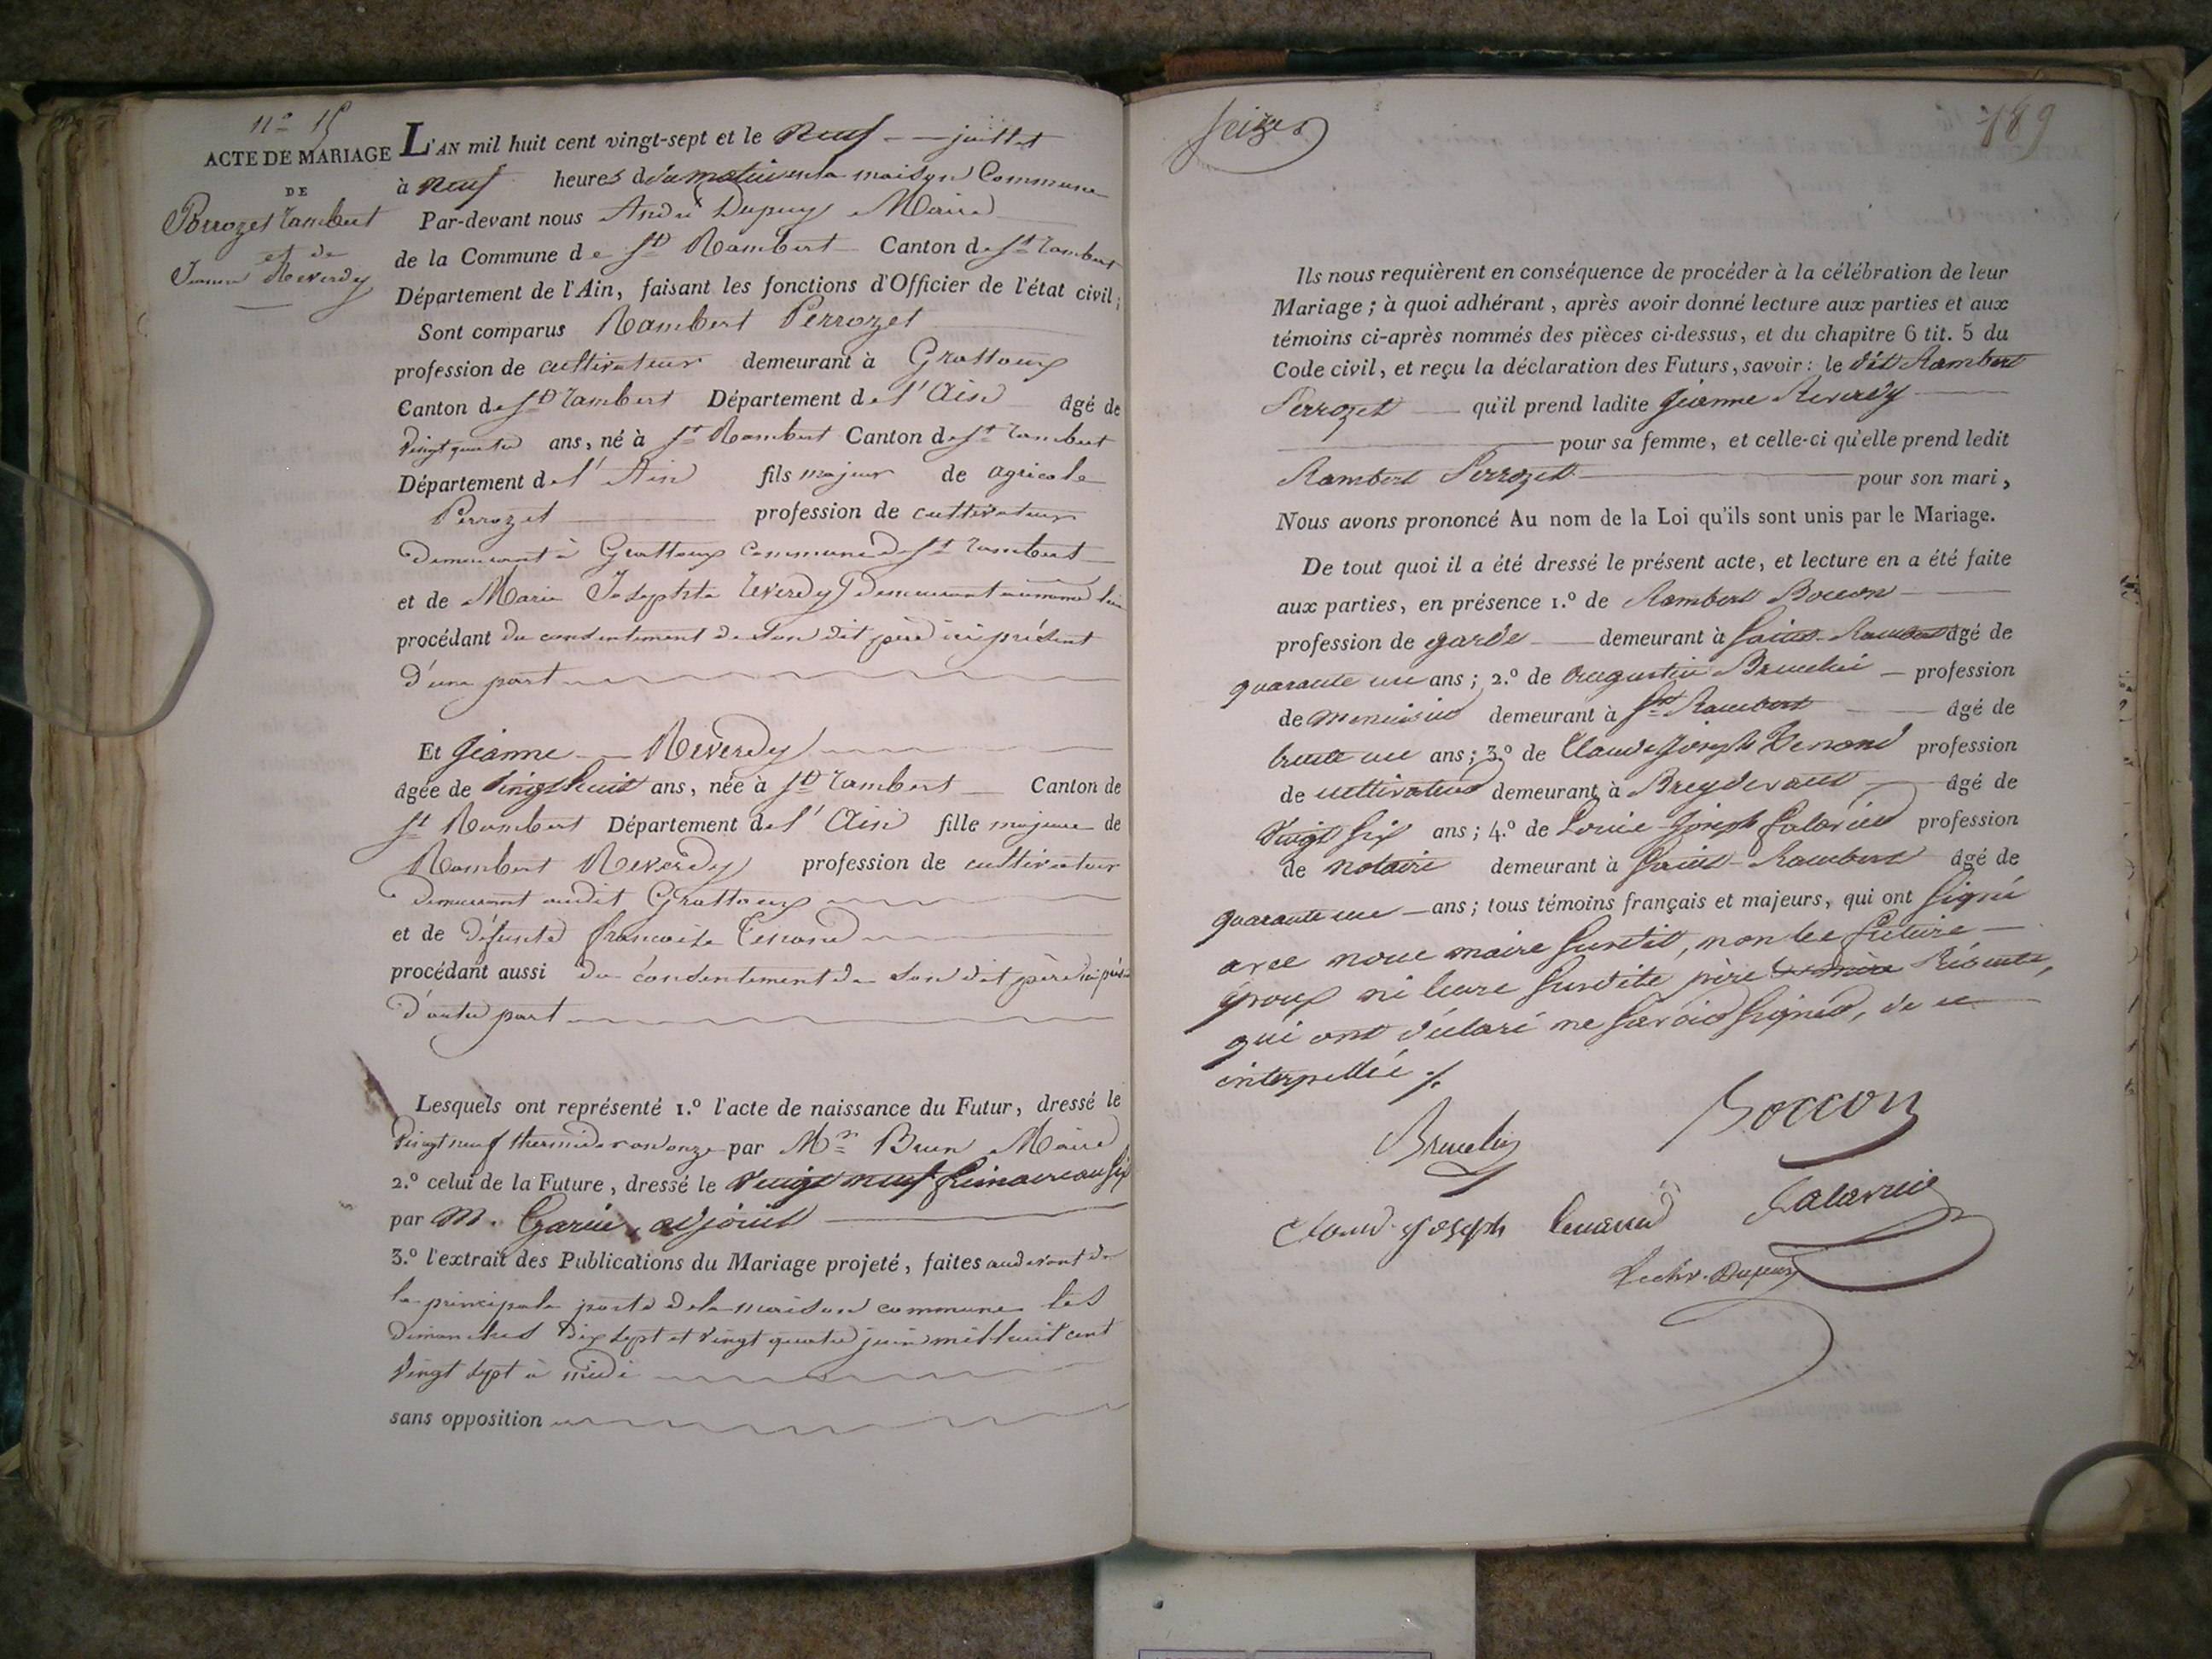 n.º 15
ACTE DE MARIAGE
DE
Perrozet Rambert
et de
Jeanne Reverdy
L'AN mil huit cent vingt-sept et le neuf juillet
à neuf heures du matin en la maison Commune
Par-devant nous André Dupuy Maire
de la Commune de St Rambert Canton de St Rambert
Département de l'Ain, faisant les fonctions d'Officier de l'état civil;
Sont comparus Rambert Perrozet
profession de cultivateur demeurant à Grattoux
Canton de St Rambert Département de l'Ain âgé de
vingt quatre ans, né à St Rambert Canton de St Rambert
Département de l'Ain fils majeur de agricole
Perrozet profession de cultivateur
demeurant à Grattoux commune de St Rambert
et de Marie Josephte Reverdy demeurant au même lieu
procédant du consentement de son dit père ici présent
d'une part
Et Jeanne Reverdy
âgée de vingt huit ans, née à St Rambert Canton de
St Rambert Département de l'Ain fille majeure de
Rambert Reverdy profession de cultivateur
demeurant audit Grattoux
et de défunte francoise Tenand
procédant aussi du consentement de son dit père ici présent
d'autre part
Lesquels ont représenté 1.º l'acte de naissance du Futur, dressé le
vingt neuf thermidor an onze par Mr Brun Maire
2.º celui de la Future, dressé le vingt neuf frimaire an six
par M. Garin adjoint
3.º l'extrait des Publications du Mariage projeté, faites au devant de
la principale porte de la maison commune les
dimanches dix sept et vingt quatre juin mil huit cent
vingt sept à midi
sans opposition
seize
189
Ils nous requièrent en conséquence de procéder à la célébration de leur
Mariage; à quoi adhérant, après avoir donné lecture aux parties et aux
témoins ci-après nommés des pièces ci-dessus, et du chapitre 6 tit. 5 du
Code civil, et reçu la déclaration des Futurs, savoir: le dit Rambert
Perrozet qu'il prend ladite Jeanne Reverdy
pour sa femme, et celle-ci qu'elle prend ledit
Rambert Perrozet pour son mari,
Nous avons prononcé Au nom de la Loi qu'ils sont unis par le Mariage.
De tout quoi il a été dressé le présent acte, et lecture en a été faite
aux parties, en présence 1.º de Rambert Boccon
profession de garde demeurant à Saint-Rambert âgé de
quarante un ans; 2.º de Augustin Brucelin profession
de menuisier demeurant à St Rambert âgé de
trente un ans; 3.º de Claude Joseph Tenand profession
de cultivateur demeurant à Breydevant âgé de
vingt six ans; 4.º de Louis Joseph Falavier profession
de notaire demeurant à Saint-Rambert âgé de
quarante un ans; tous témoins français et majeurs, qui ont signé
avec nous maire susdit, non les future
époux ni leurs susdits père et mère Présents,
qui ont déclaré ne savoir signer, de ce
interpellés ./.
Brucelin
Boccon
Claude joseph tenand
Falavier
Dupuy